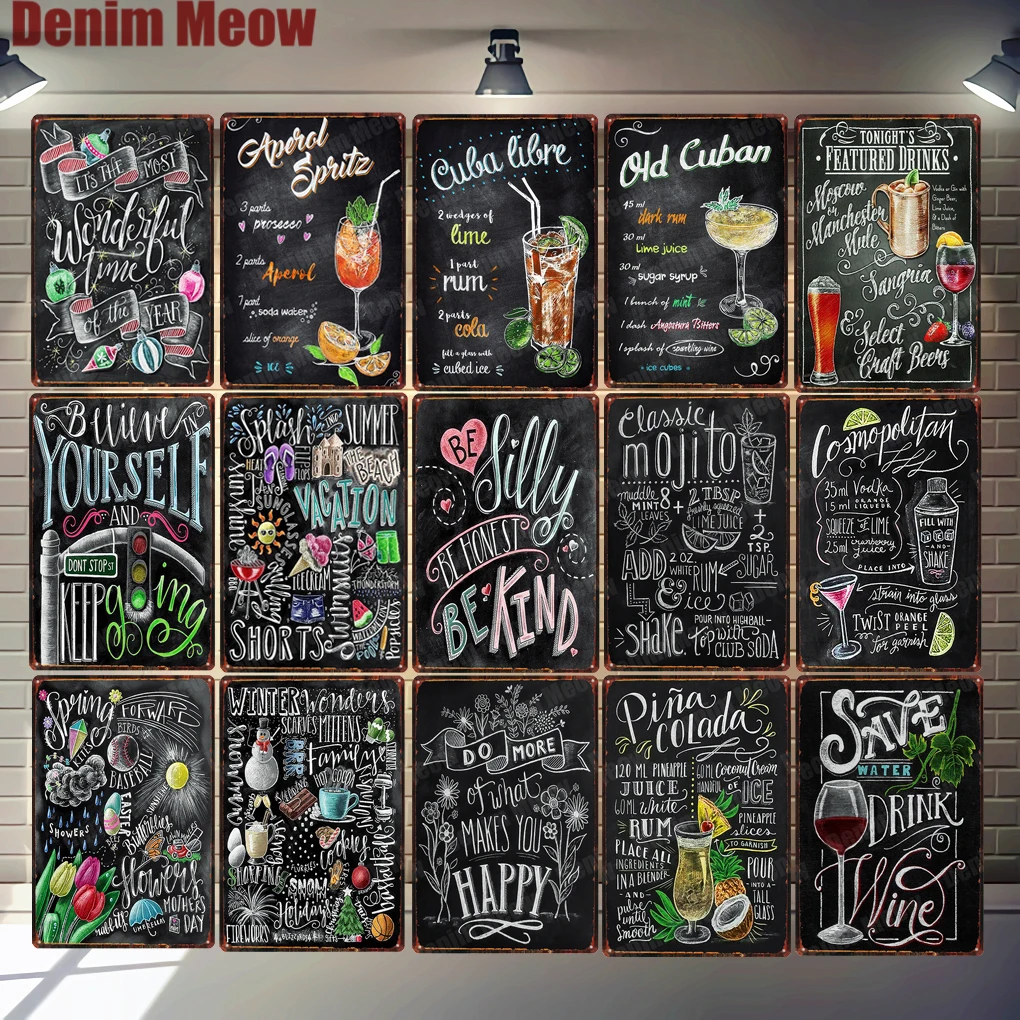 Denim Meow
IT'S THE MOST
Wonderful
time
of the YEAR
Aperol
Spritz
3 parts
prosecco
2 parts
Aperol
1 part
soda water
slice of orange
ICE
Cuba libre
2 wedges of
lime
1 part
rum
2 parts
cola
fill a glass with
cubed ice
Old Cuban
45 ml
dark rum
30 ml
Lime juice
30 ml
sugar syrup
1 bunch of mint
1 dash Angostura Bitters
1 splash of sparkling wine
ice cubes
TONIGHT'S
FEATURED DRINKS
Moscow
or
Manchester
Mule
Vodka or Gin with
Ginger Beer,
Lime Juice,
& a Dash of
Bitters
Sangria
& Select
Craft Beers
Believe IN
YOURSELF
AND
DONT STOP ST
KEEP going
Splash INTO SUMMER
HEAT
FLIP FLOPS
THE BEACH
Sunshine
VACATION
BBQ
ICE CREAM
Sunsets
THUNDERSTORM
WATERMELON
SHORTS
POOL
Popsicles
BE
Silly
BE HONEST
BE KIND
classic
mojito
muddle 8
MINT
LEAVES
+
2 TBSP
freshly squeezed
LIME JUICE
+
2
TSP.
SUGAR
ADD 2 OZ.
WHITE RUM
& ice
Shake.
POUR INTO HIGHBALL
top with
CLUB SODA
Cosmopolitan
35ml Vodka
15ml ORANGE
LIQUEUR
SQUEEZE OF LIME
25ml cranberry
juice
PLACE INTO
FILL WITH
ICE
-AND-
SHAKE
strain into glass
TWIST ORANGE
PEEL
for garnish
Spring FORWARD
KITES
BIRDS
BASEBALL
SUNSHINE
SHOWERS
EASTER
Butterflies
flowers
MOTHERS
DAY
umbrellas
WINTER Wonders
SCARVES MITTENS
snowmen
BRRR
family
SLEDDING
HOT COCOA
cookies
SHOPPING
SNOW
Holidays
Basketball
FIREWORKS
DO MORE
of what
MAKES YOU
HAPPY
Piña
COLADA
120 ML PINEAPPLE
JUICE
60ML White
RUM
PLACE ALL
INGREDIENTS
IN A BLENDER
AND
pulse
until
Smooth
60ML Coconut Cream
HANDFUL OF
ICE
PINEAPPLE
slices
TO GARNISH
POUR
-INTO A-
TALL
GLASS
SAVE
WATER
DRINK
Wine